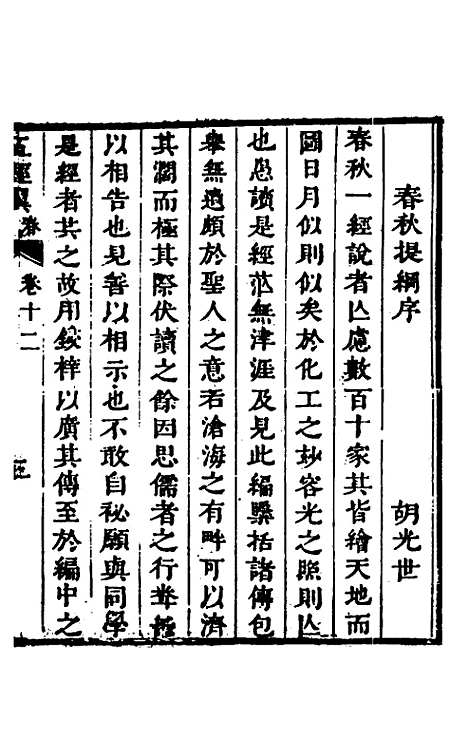 春秋提綱序　胡光世
春秋一經說者亾慮數百十家其皆繪天地而
圖日月似則似矣於化工之妙容光之照則亾
也愚讀是經茫無津涯及見此編檃括諸傳包
舉無遺頗於聖人之意若滄海之有畔可以濟
其瀾而極其際伏讀之餘因思儒者之行
以相告也見善以相示也不敢自秘願與同學
是經者共之故用鋟梓以廣其傳至於編中之
五經翼　卷十二